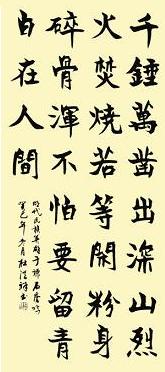 千錘萬凿出深山烈
火焚燒若等閑粉身
碎骨渾不怕要留青
白在人間
明代民族英雄于謙石灰吟
癸巳年冬月杜